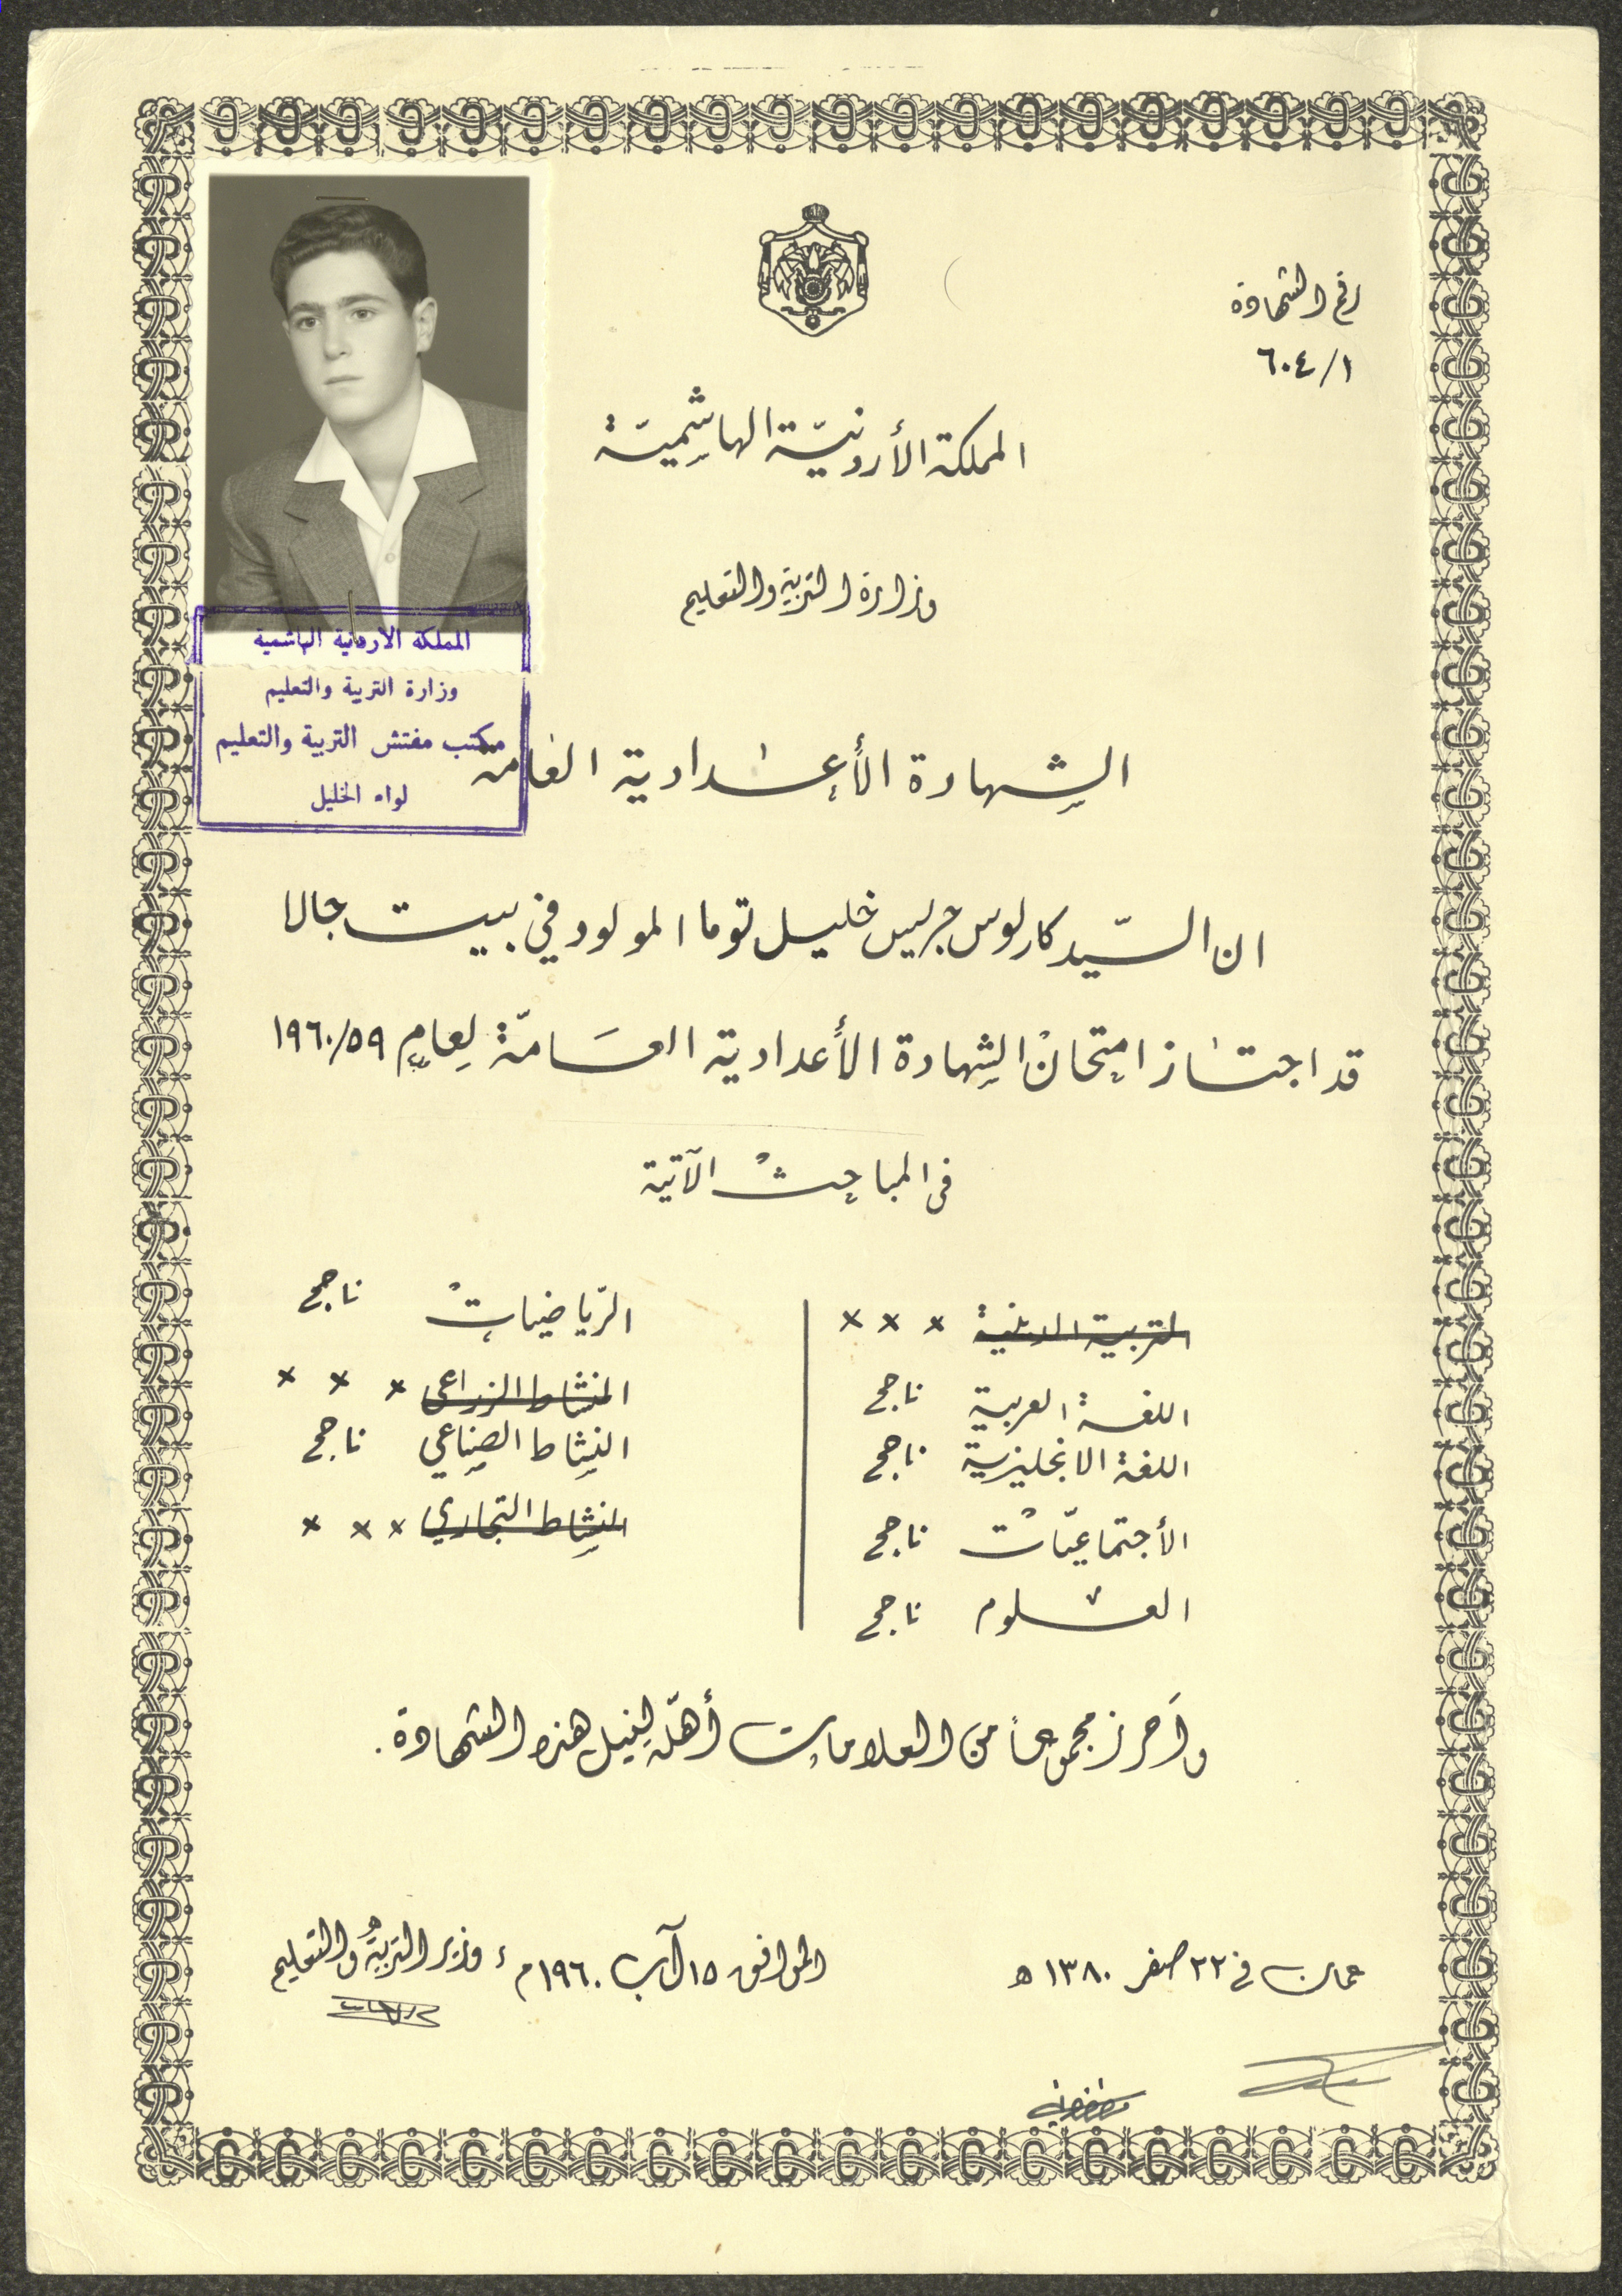 رقم الشهادة
٦٠٤/١
المملكة الأردنيّة الهاشميّة
وزارة التربية والتعليم
المملكة الاردنية الهاشمية
وزارة التربية والتعليم
مكتب مفتش التربية والتعليم
لواء الخليل
الشهادة الأعدادية العامة
ان السّيد كارلوس جريس خليل توما المولود في بيت جالا
قد اجتاز امتحان الشهادة الأعدادية العامّة لعام ١٩٦٠/٥٩
في المباحث الآتية
التربية الدينية × × ×
اللغة العربية ناجح
اللغة الانجليزية ناجح
الأجتماعيّات ناجح
العلوم ناجح
الرّياضيات ناجح
النشاط الزراعي × × ×
النشاط الصناعي ناجح
النشاط التجاري × × ×
وأحرز مجموعاً من العلامات أهلّه لنيل هذه الشهادة.
عمان في ٢٢ صفر ١٣٨٠ هـ الموافق ١٥ آب ١٩٦٠ م وزير التربية والتعليم